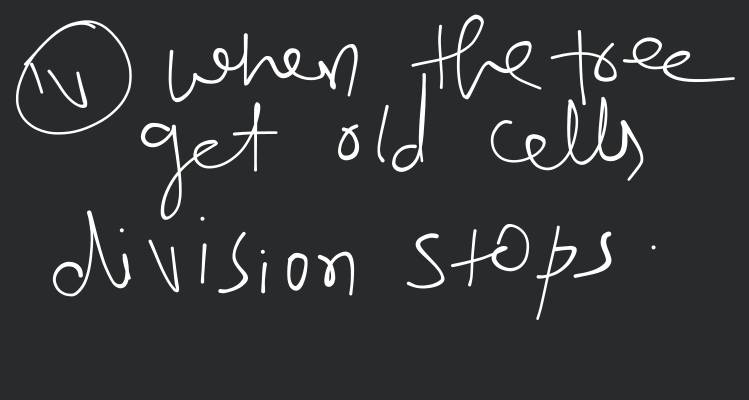 IV when the tree
get old cells
division stops.